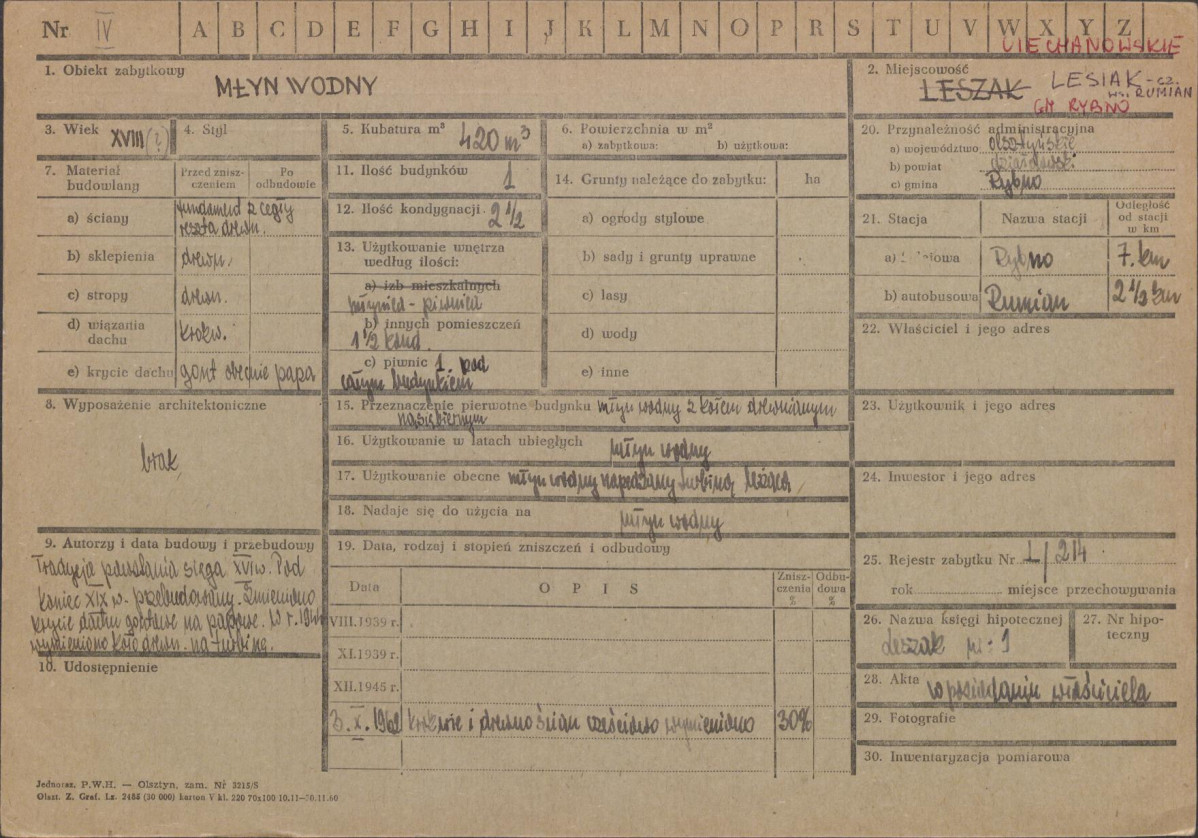 Nr IV A B C D E F G H I J K L M N O P R S T U V W X Y Z
CIECHANOWSKIE
1. Obiekt zabytkowy
MŁYN WODNY
2. Miejscowość
LESZAK LESIAK - cz.
ws. RUMIAN
GM RYBNO
3. Wiek XVIII (?)
4. Styl
5. Kubatura m³ 420 m³
6. Powierzchnia w m²
a) zabytkowa: b) użytkowa:
7. Materiał budowlany
Przed zniszczeniem
Po odbudowie
a) ściany fundament z cegły
reszta drewn.
b) sklepienia drewn.
c) stropy drewn.
d) wiązania dachu krokw.
e) krycie dachu gont obecnie papa
8. Wyposażenie architektoniczne
brak
9. Autorzy i data budowy i przebudowy
Tradycja powstania sięga XVI w. Pod
koniec XIX w. przebudowany. Zmieniono
krycie dachu gontowe na papowe. W r.
wymieniono koło drewn. na turbinę.
10. Udostępnienie
11. Ilość budynków 1
12. Ilość kondygnacji 2 1/2
13. Użytkowanie wnętrza
według ilości:
a) izb mieszkalnych
młynica - piwnica
b) innych pomieszczeń
1 1/2 kond.
c) piwnic 1. pod
całym budynkiem
14. Grunty należące do zabytku: ha
a) ogrody stylowe
b) sady i grunty uprawne
c) lasy
d) wody
e) inne
15. Przeznaczenie pierwotne budynku młyn wodny z kołem drewnianym
nasiębiernym
16. Użytkowanie w latach ubiegłych młyn wodny
17. Użytkowanie obecne młyn wodny napędzany turbiną leżącą
18. Nadaje się do użycia na młyn wodny
19. Data, rodzaj i stopień zniszczeń i odbudowy
Data
OPIS
Zniszczenia %
Odbudowa %
VIII.1939 r.
XI.1939 r.
XII.1945 r.
3. X. 1962 krokwie i drewno ścian częściowo wymieniono 30%
20. Przynależność administracyjna
a) województwo olsztyńskie
b) powiat działdowski
c) gmina Rybno
21. Stacja
Nazwa stacji
Odległość od stacji w km
a) Rybno 7. km
b) autobusowa Rumian 2 1/2 km
22. Właściciel i jego adres
23. Użytkownik i jego adres
24. Inwestor i jego adres
25. Rejestr zabytku Nr L/214
rok miejsce przechowywania
26. Nazwa księgi hipotecznej
Leszak nr - 1
27. Nr hipoteczny
28. Akta w posiadaniu właściciela
29. Fotografie
30. Inwentaryzacja pomiarowa
Jednoraz. P.W.H. — Olsztyn, zam. Nr 3215/S
Olszt. Z. Graf. Lz. 2485 (30 000) karton V kl. 220 70x100 10.11—30.11.60